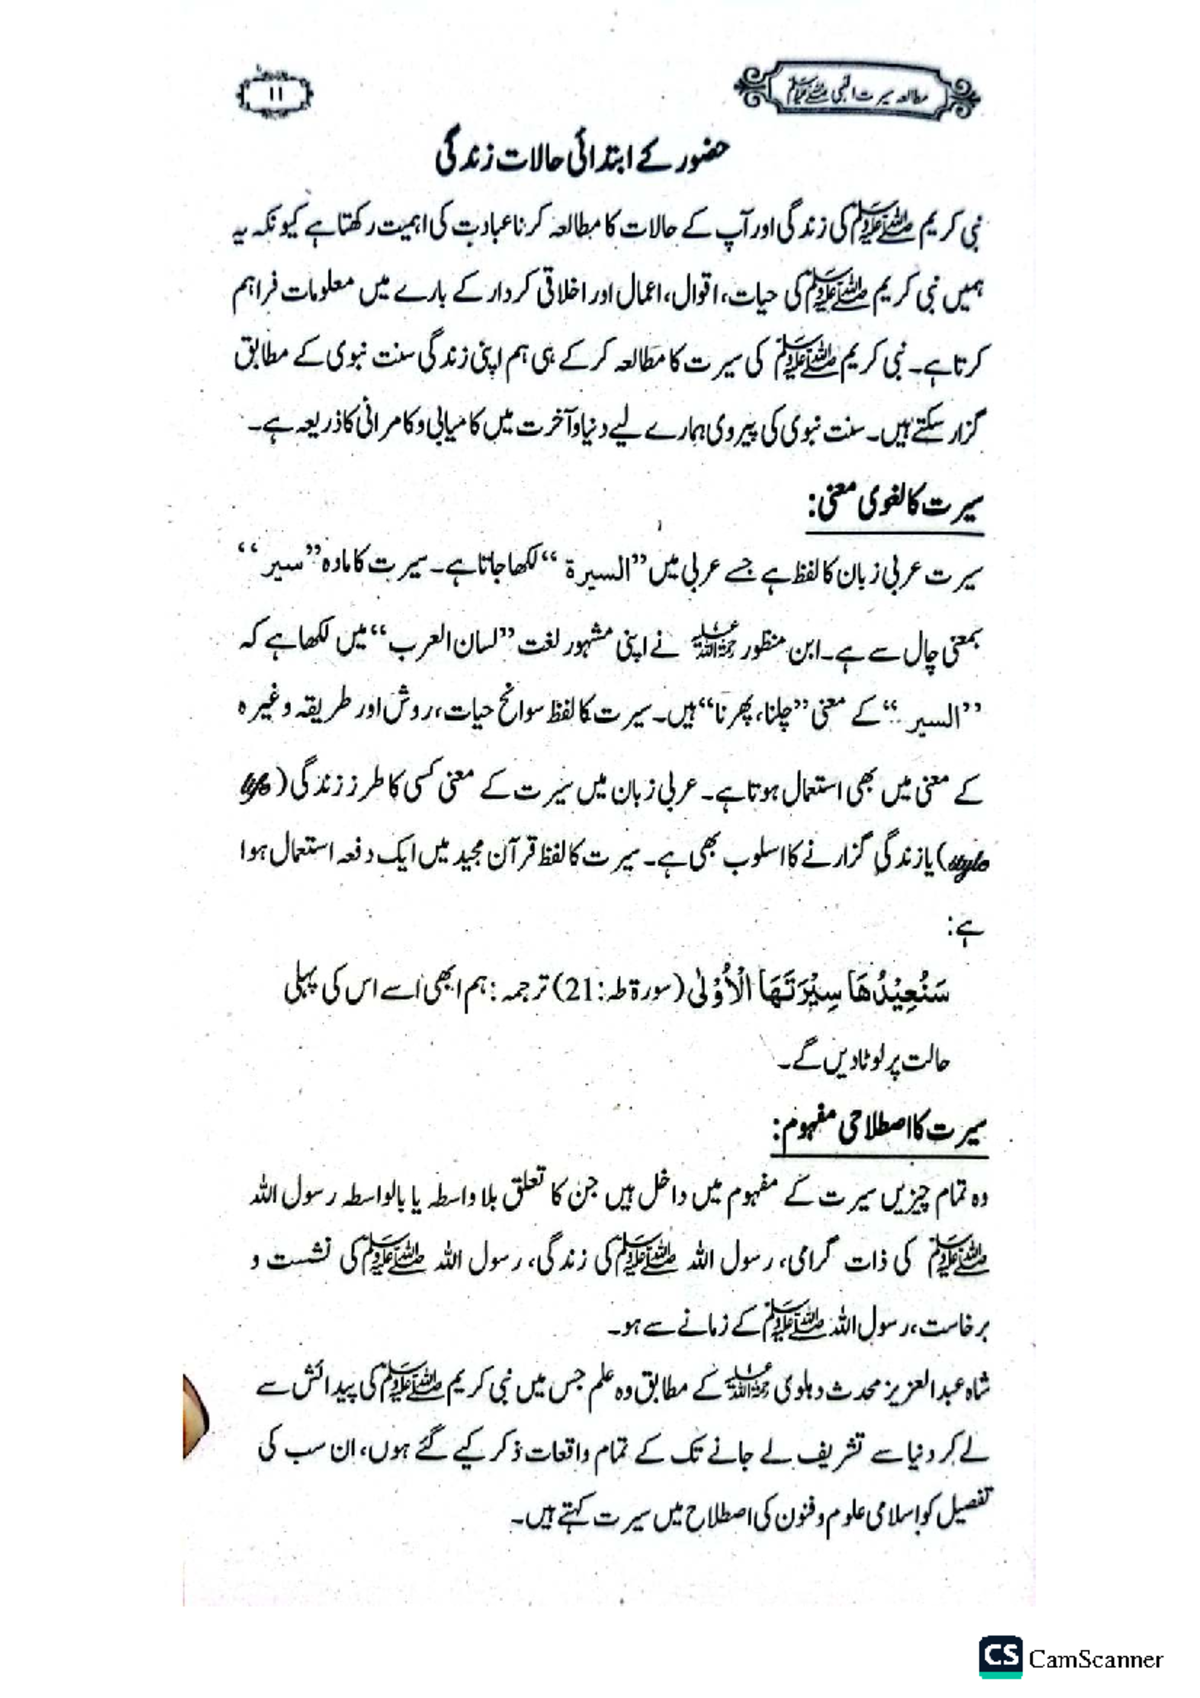 مطالعہ سیرت النبی ﷺ
۱۱
حضور کے ابتدائی حالات زندگی
نبی کریم ﷺ کی زندگی اور آپ کے حالات کا مطالعہ کرنا عبادت کی اہمیت رکھتا ہے کیونکہ یہ
ہمیں نبی کریم ﷺ کی حیات، اقوال، اعمال اور اخلاقی کردار کے بارے میں معلومات فراہم
کرتا ہے۔ نبی کریم ﷺ کی سیرت کا مطالعہ کر کے ہی ہم اپنی زندگی سنت نبوی کے مطابق
گزار سکتے ہیں۔ سنت نبوی کی پیروی ہمارے لیے دنیا و آخرت میں کامیابی و کامرانی کا ذریعہ ہے۔
سیرت کا لغوی معنی:
سیرت عربی زبان کا لفظ ہے جسے عربی میں ”السیرۃ“ لکھا جاتا ہے۔ سیرت کا مادہ ”سیر“
بمعنی چال سے ہے۔ ابن منظور رحمۃ اللہ علیہ نے اپنی مشہور لغت ”لسان العرب“ میں لکھا ہے کہ
”السیر“ کے معنی ”چلنا، پھرنا“ ہیں۔ سیرت کا لفظ سوانح حیات، روش اور طریقہ وغیرہ
کے معنی میں بھی استعمال ہوتا ہے۔ عربی زبان میں سیرت کے معنی کسی کا طرز زندگی (life
style) یا زندگی گزارنے کا اسلوب بھی ہے۔ سیرت کا لفظ قرآن مجید میں ایک دفعہ استعمال ہوا
ہے:
سَنُعِيْدُهَا سِيْرَتَهَا الْاُوْلٰى (سورۃ طہ:21) ترجمہ: ہم ابھی اسے اس کی پہلی
حالت پر لوٹا دیں گے۔
سیرت کا اصطلاحی مفہوم:
وہ تمام چیزیں سیرت کے مفہوم میں داخل ہیں جن کا تعلق بلا واسطہ یا بالواسطہ رسول اللہ
ﷺ کی ذات گرامی، رسول اللہ ﷺ کی زندگی، رسول اللہ ﷺ کی نشست و
برخاست، رسول اللہ ﷺ کے زمانے سے ہو۔
شاہ عبدالعزیز محدث دہلوی رحمۃ اللہ علیہ کے مطابق وہ علم جس میں نبی کریم ﷺ کی پیدائش سے
لے کر دنیا سے تشریف لے جانے تک کے تمام واقعات ذکر کیے گئے ہوں، ان سب کی
تفصیل کو اسلامی علوم و فنون کی اصطلاح میں سیرت کہتے ہیں۔
CS CamScanner